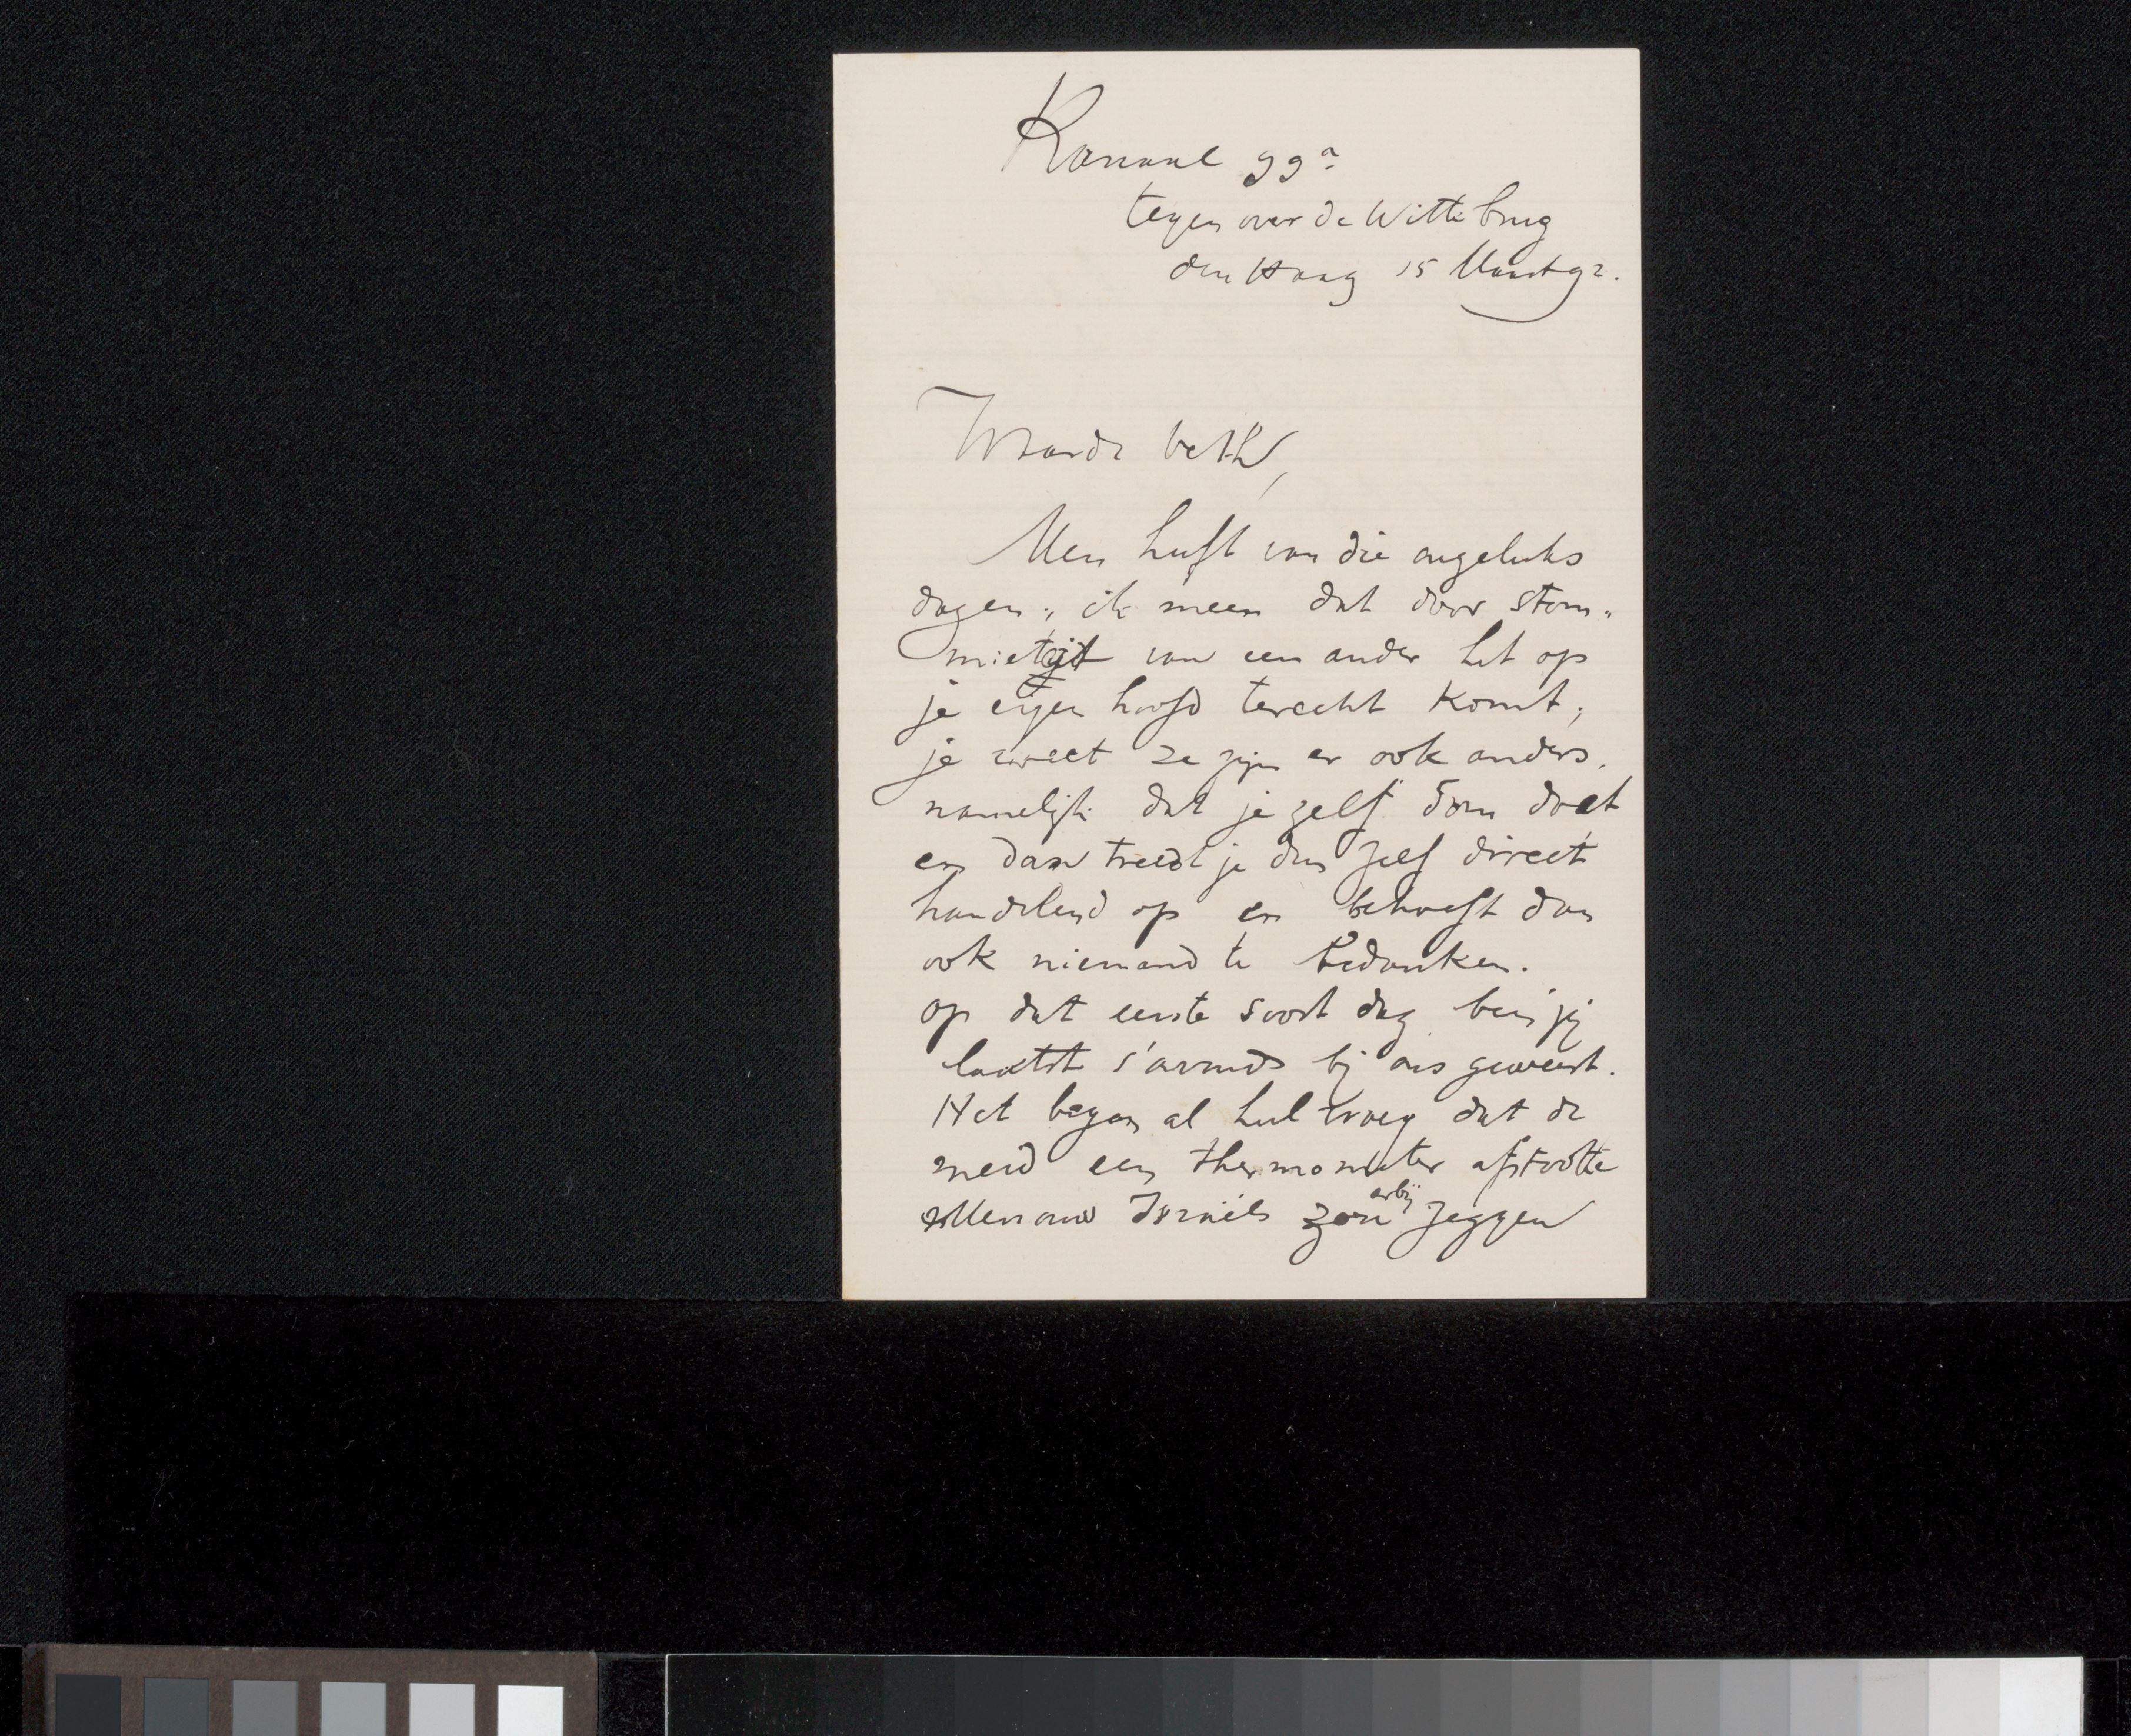 Kanaal 99a
tegen over de Witte brug
den Haag 15 Maart 92.
Waarde beth,
Men heeft van die ongeluks
dagen, ik meen dat door stom-
miteit van een ander het op
je eigen hoofd terecht komt;
je weet ze zijn er ook anders,
namelijk dat je zelf dom doet
en dan treedt je dus zelf direct
handelend op en behoeft dan
ook niemand te bedanken.
op dat eerste soort dag ben jij
laatst s'avonds bij ons geweest.
Het began al heel vroeg dat de
meid een thermometer afstootte
Mevrouw Israëls zou erbij zeggen